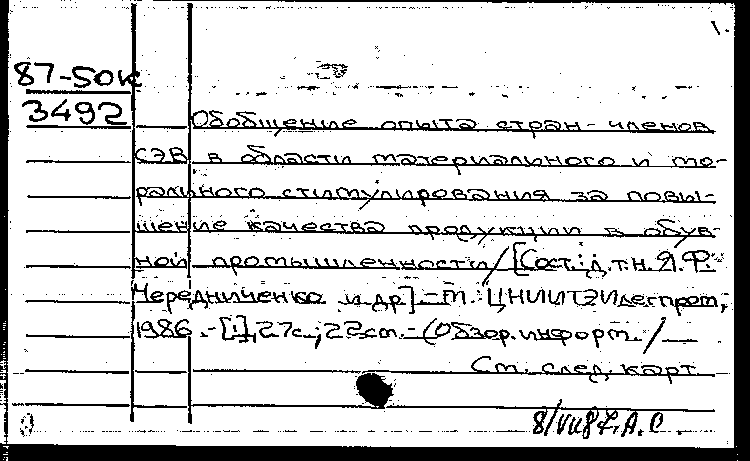 1.
87-50к
3492
Обобщение опыта стран-членов
СЭВ в области материального и мо-
рального стимулирования за повы-
шение качества продукции в обув-
ной промышленности/[Сост.: д.т.н. Я.Ф.
Чередниченко и др.] - М.: ЦНИИТЭИлегпром,
1986. - [1], 27с.; 22см. - (Обзор. информ. / —
См. след. карт.
8/VII87. А.С.